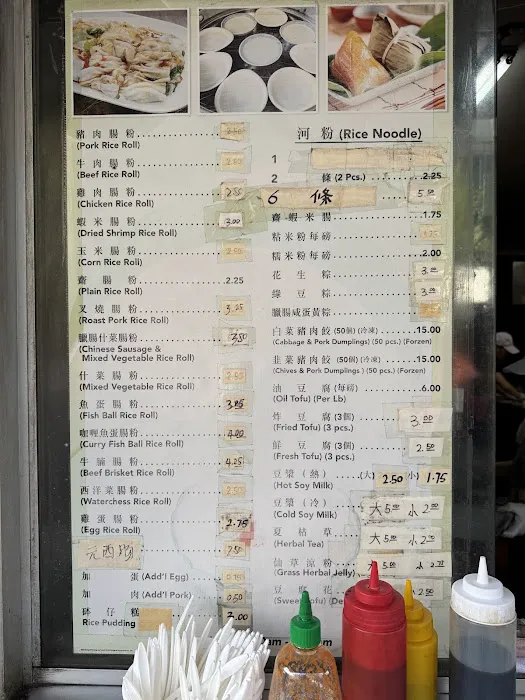 豬肉腸粉 2.50
(Pork Rice Roll)
牛肉腸粉 2.50
(Beef Rice Roll)
雞肉腸粉 2.50
(Chicken Rice Roll)
蝦米腸粉 3.00
(Dried Shrimp Rice Roll)
玉米腸粉 2.50
(Corn Rice Roll)
齋腸粉 2.25
(Plain Rice Roll)
叉燒腸粉 3.25
(Roast Pork Rice Roll)
臘腸什菜腸粉 3.50
(Chinese Sausage &
Mixed Vegetable Rice Roll)
什菜腸粉 2.50
(Mixed Vegetable Rice Roll)
魚蛋腸粉
(Fish Ball Rice Roll)
咖喱魚蛋腸粉 4.00
(Curry Fish Ball Rice Roll)
牛腩腸粉 4.25
(Beef Brisket Rice Roll)
西洋菜腸粉 2.50
(Waterchess Rice Roll)
雞蛋腸粉 2.75
(Egg Rice Roll)
加蛋 (Add'l Egg)
加肉 (Add'l Pork) 0.50
砵仔糕
Rice Pudding 2.00
河粉 (Rice Noodle)
1
2 條 (2 Pcs.) 2.25
6 條 5.00
齋蝦米腸 1.75
粘米粉每磅
糯米粉每磅 2.00
花生粽 3.00
綠豆粽 3.00
臘腸咸蛋黃粽
白菜豬肉餃 (50個) (冷凍) 15.00
(Cabbage & Pork Dumplings) (50 pcs.) (Forzen)
韭菜豬肉餃 (50個) (冷凍) 15.00
(Chives & Pork Dumplings) (50 pcs.) (Forzen)
油豆腐 (每磅) 6.00
(Oil Tofu) (Per Lb)
炸豆腐 (3個) 3.00
(Fried Tofu) (3 pcs.)
鮮豆腐 (3個) 2.50
(Fresh Tofu) (3 pcs.)
豆漿 (熱) (大) 2.50 小) 1.75
(Hot Soy Milk)
豆漿 (冷) 大 5.00 小 2.00
(Cold Soy Milk)
夏枯草 大 5.00 小 2.00
(Herbal Tea)
仙草涼粉 大 5.00 小
(Grass Herbal Jelly)
豆腐花 2.50
(Sweet Tofu)